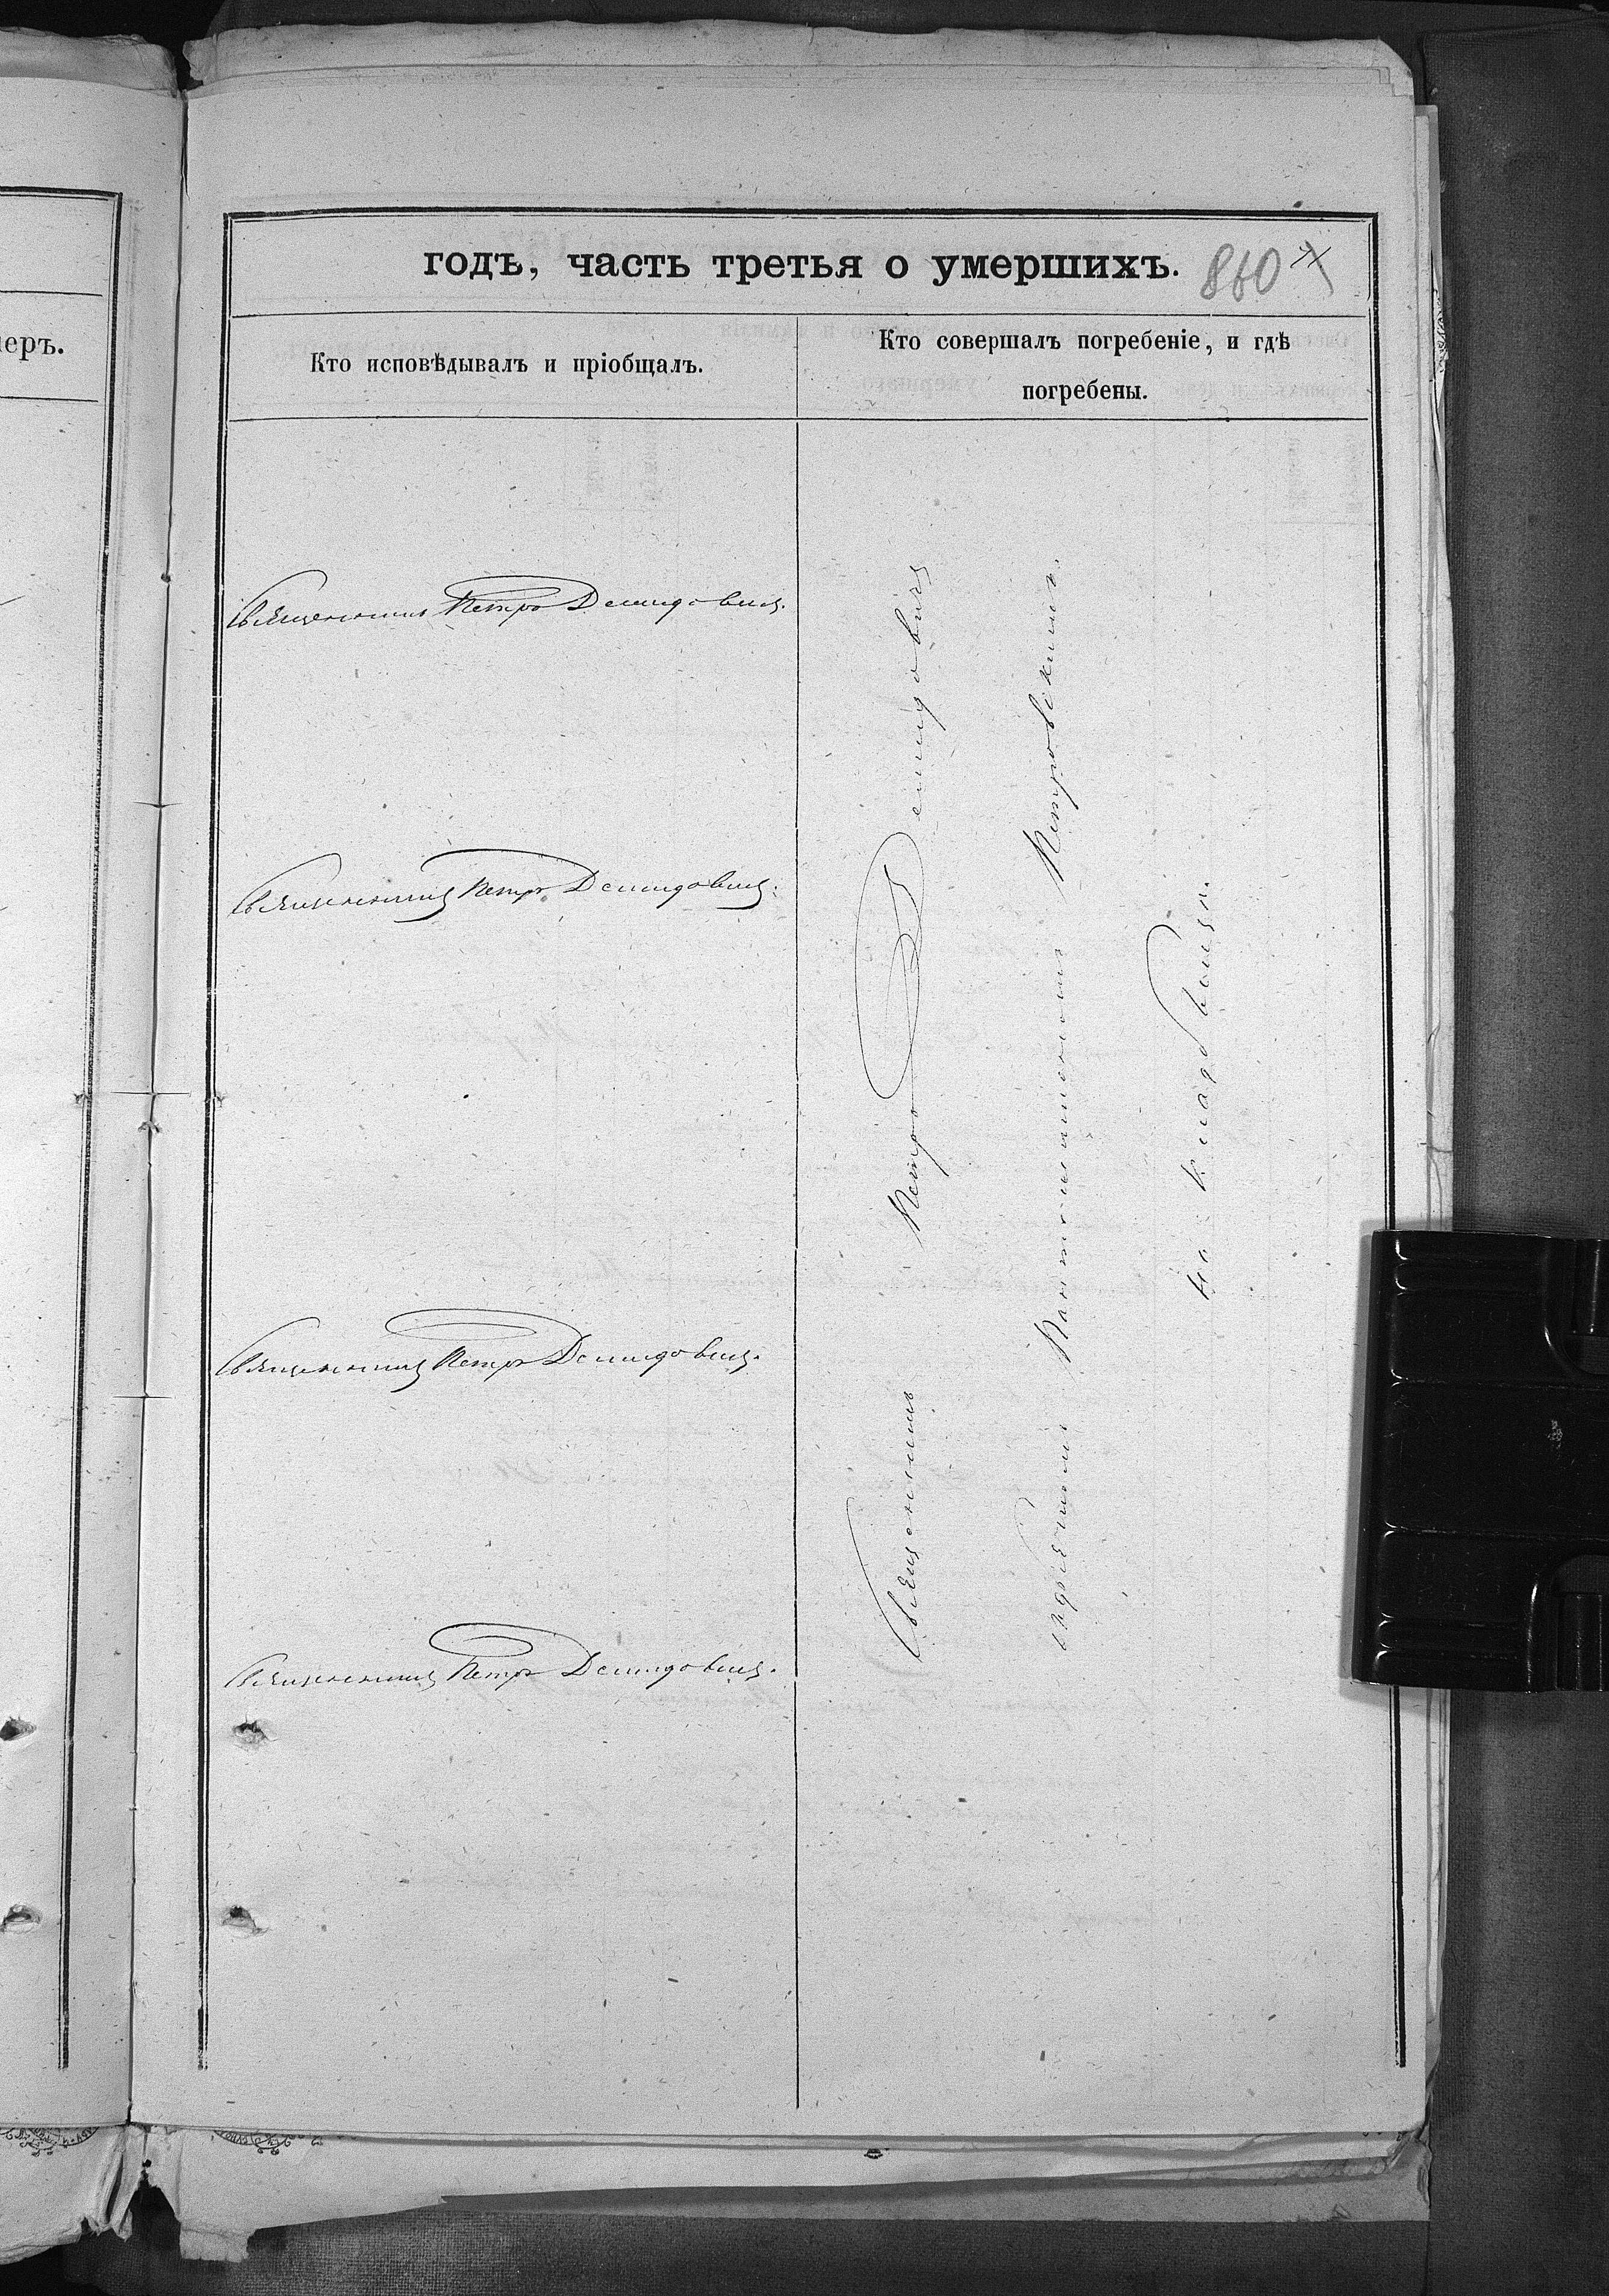 меръ.
годъ, часть третья о умершихъ. 860
Кто исповѣдывалъ и пріобщалъ.
Кто совершалъ погребеніе, и гдѣ
погребены.
Священникъ Петръ Демидовичъ.
Священникъ Петръ Демидовичъ.
Священникъ Петръ Демидовичъ.
Священникъ Петръ Демидовичъ.
Священникъ Петръ Демидовичъ
Петровскимъ.
на кладбищѣ.